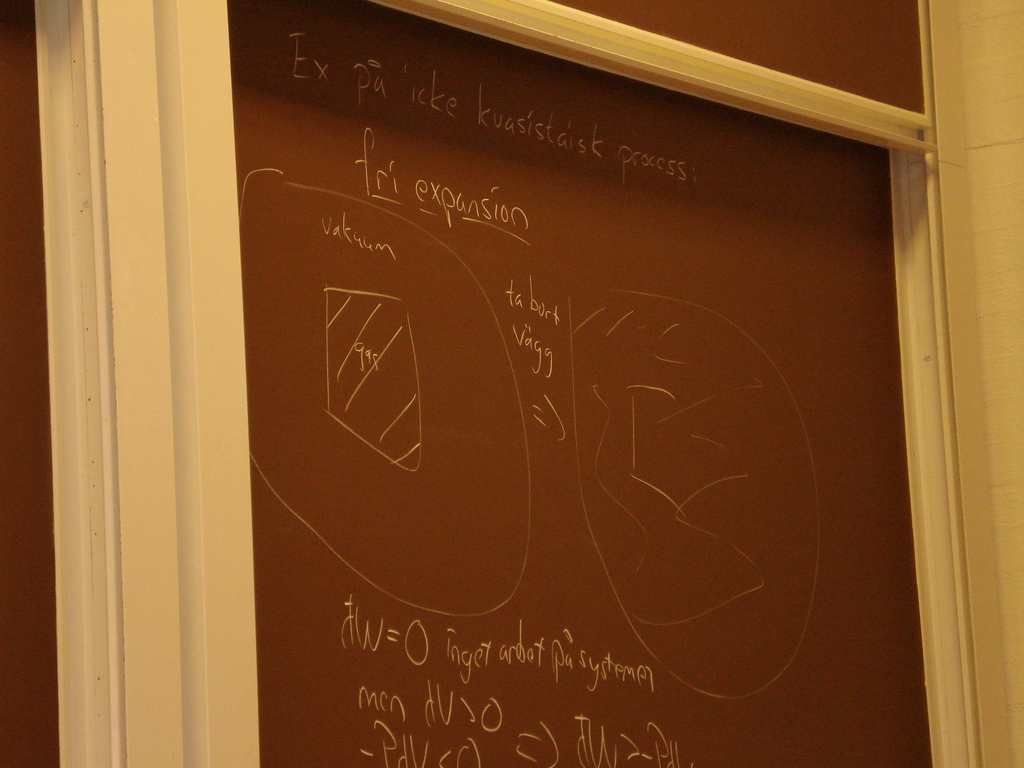 Ex på icke kvasistaisk process:
fri expansion
vakuum
gas
ta bort
vägg
=>
đW=0 inget arbet på systemen
men dV>0
-PdV<0 => đW>-PdV